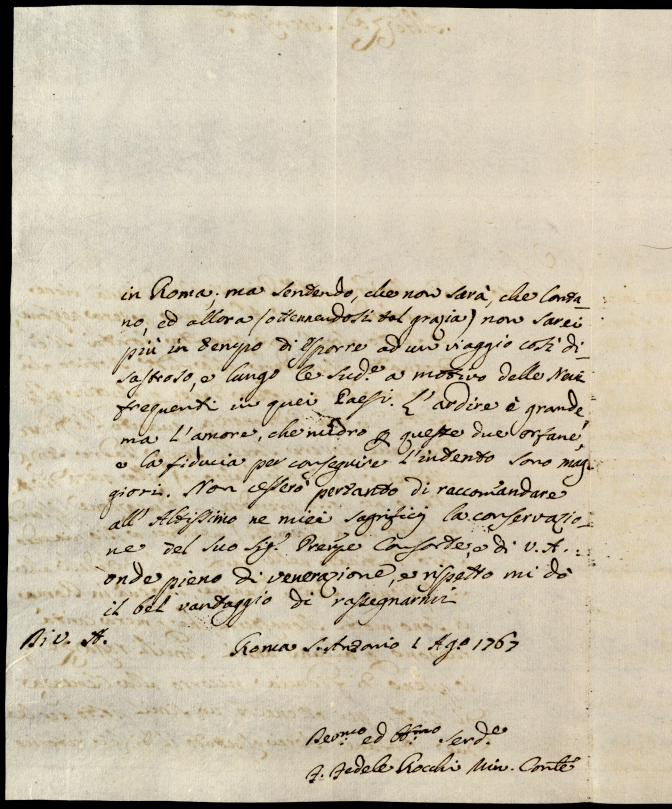 in Roma; ma sentendo, che non sarà, che lonta=
no, ed allora (ottenendosi tal grazia) non sarei
più in tempo di esporre ad un viaggio così di=
sastroso, e lungo le sud.e a motivo delle Nevi
frequenti in quei Paesi. L'ardire è grande,
ma l'amore, che nutro p queste due orfane,
e la fiducia per conseguire l'intento sono mag=
giori. Non cesserò pertanto di raccomandare
all'Altissimo ne miei sagrificj la conservazio=
ne del suo Sig.r Prenpe Consorte, e di V. A.:
onde pieno di venerazione, e rispetto mi dò
il bel vantaggio di rassegnarmi
Di V. A.
Roma S. Antonio 1 Ago 1767
Devmo ed Obmo Serv.e
F. Fedele Rocchi Min. Conte